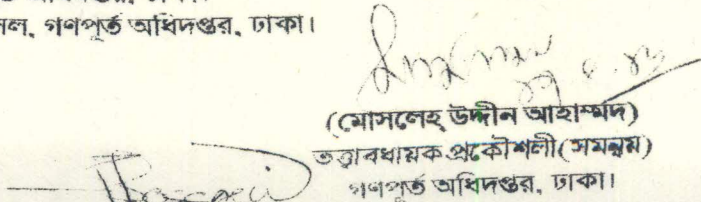 গণপূর্ত অধিদপ্তর, ঢাকা।
(মোসলেহ্ উদ্দীন আহাম্মদ)
তত্ত্বাবধায়ক প্রকৌশলী(সমন্বয়)
গণপূর্ত অধিদপ্তর, ঢাকা।